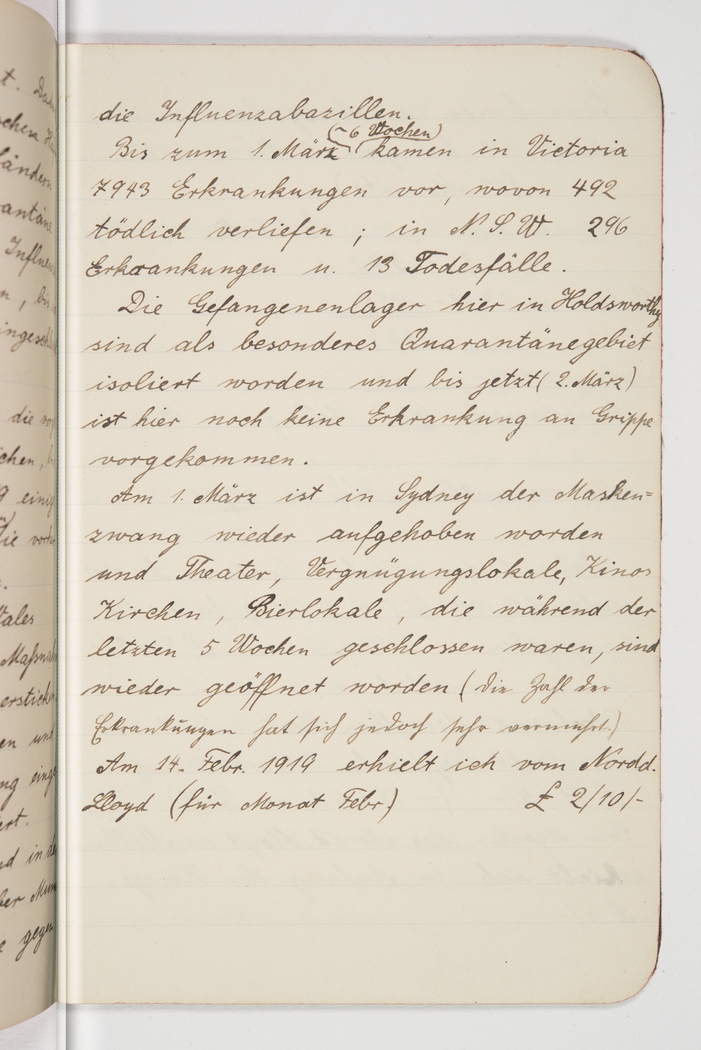 die Influenzabazillen.
(~6 Wochen)
Bis zum 1. März kamen in Victoria
7943 Erkrankungen vor, wovon 492
tödlich verliefen ; in N. S. W. 296
Erkrankungen u. 13 Todesfälle.
Die Gefangenenlager hier in Holdsworthy
sind als besonderes Quarantänegebiet
isoliert worden und bis jetzt (2. März)
ist hier noch keine Erkrankung an Grippe
vorgekommen.
Am 1. März ist in Sydney der Masken=
zwang wieder aufgehoben worden
und Theater, Vergnügungslokale, Kinos
Kirchen, Bierlokale, die während der
letzten 5 Wochen geschlossen waren, sind
wieder geöffnet worden (die Zahl der
Erkrankungen hat sich jedoch sehr vermehrt)
Am 14. Febr. 1919 erhielt ich vom Nordd.
Lloyd (für Monat Febr) £ 2/10/-